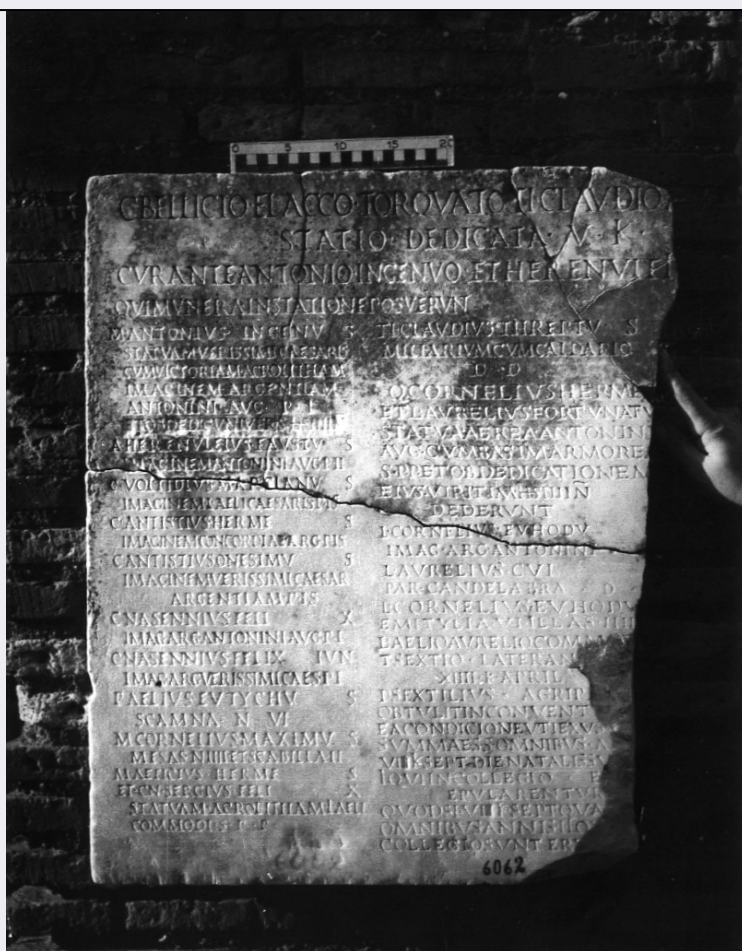 0 5 10 15 20
C·BELLICIO·FLACCO·TORQVATO·TI·CLAVDIO
STATIO·DEDICATA·V·K·
CVRANTE ANTONIO INGENVO·ET HERENVLEI
QVI MVNERA IN STATIONE POSVERVN
M·ANTONIVS INGENV S
STATVAM VERISSIMI CAESARIS
CVM VICTORIA MACROLITHAM
IMAGINEM ARGENTIAM
ANTONINI AVG·P·I
A HERENVLEIVS FAVSTV S
IMAGINEM ANTONINI AVG P II
S
IMAGINEM L AELI CAESARIS P IS
C ANTISTIVS HERME S
IMAGINEM CONCORDIAE ARG P IS
C ANTISTIVS ONESIMV S
IMAGINEM VERISSIMI CAESAR
ARGENTIAM P I S
CN ASENNIVS FELI X
IMAG ARG ANTONINI AVG P I
CN ASENNIVS FELIX IVN
IMAG ARG VERISSIMI CAES P I
P AELIVS EVTYCHV S
SCAMNA·N·VI
M CORNELIVS MAXIMV S
MESAS N IIII ET SCABILL A II
HERME S
ET·CN·SERGIVS FELI X
STATVAM MACROLITHAM L AELI
COMMODI S·P·F
TI CLAVDIVS THREPTV S
MILIARIVM CVM CALDARIO
D·D
Q CORNELIVS HERME
ET L AVRELIVS FORTVNATV
STATVA AEREA ANTONIN
AVG·CVM BASI MARMOREA
S·P·ET OB DEDICATIONEM
EIVS VIRITIM
DEDERVNT
L·CORNELIVS·EVHODV
IMAG·ARG ANTONINI
L AVRELIVS·CVI
PAR·CANDELABRA D
L·CORNELIVS·EVHODV
L AELIO AVRELIO COMM
T SEXTIO·LATERAN
XIIII·K·APRIL
P SEXTILIVS·AGRIP
OBTVLIT IN CONVENT
EA CONDICIONE VTI EX V
SVMMAE S S OMNIBVS A
VIII K SEPT DIE NATALI
QVI IN COLLEGIO E
EPVLARENTVR
QVOD SI VIII K SEPT QVA
OMNIBVS ANNIS
COLLEGIO S VNT ER
6062